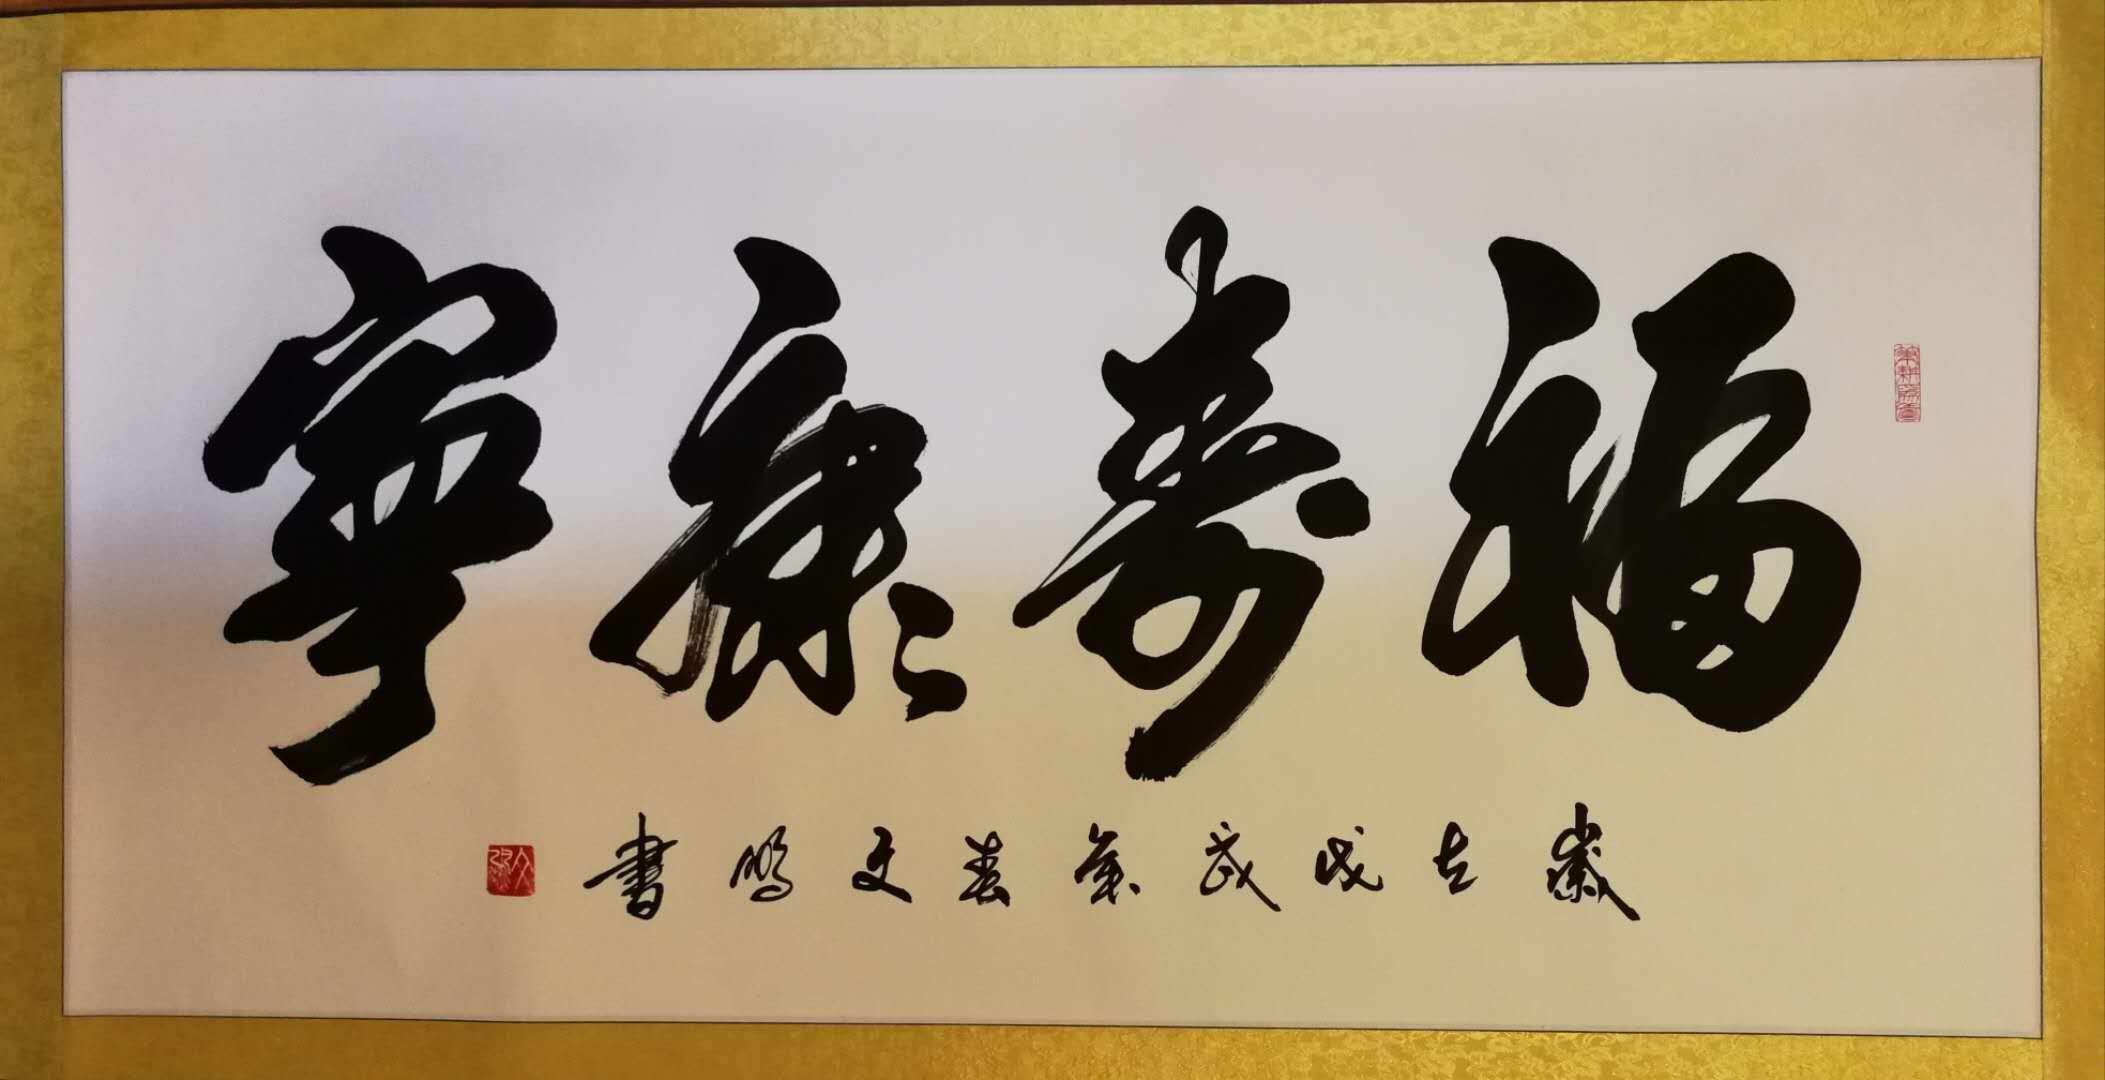 福壽康寧
歲在戊戌年春文鵬書